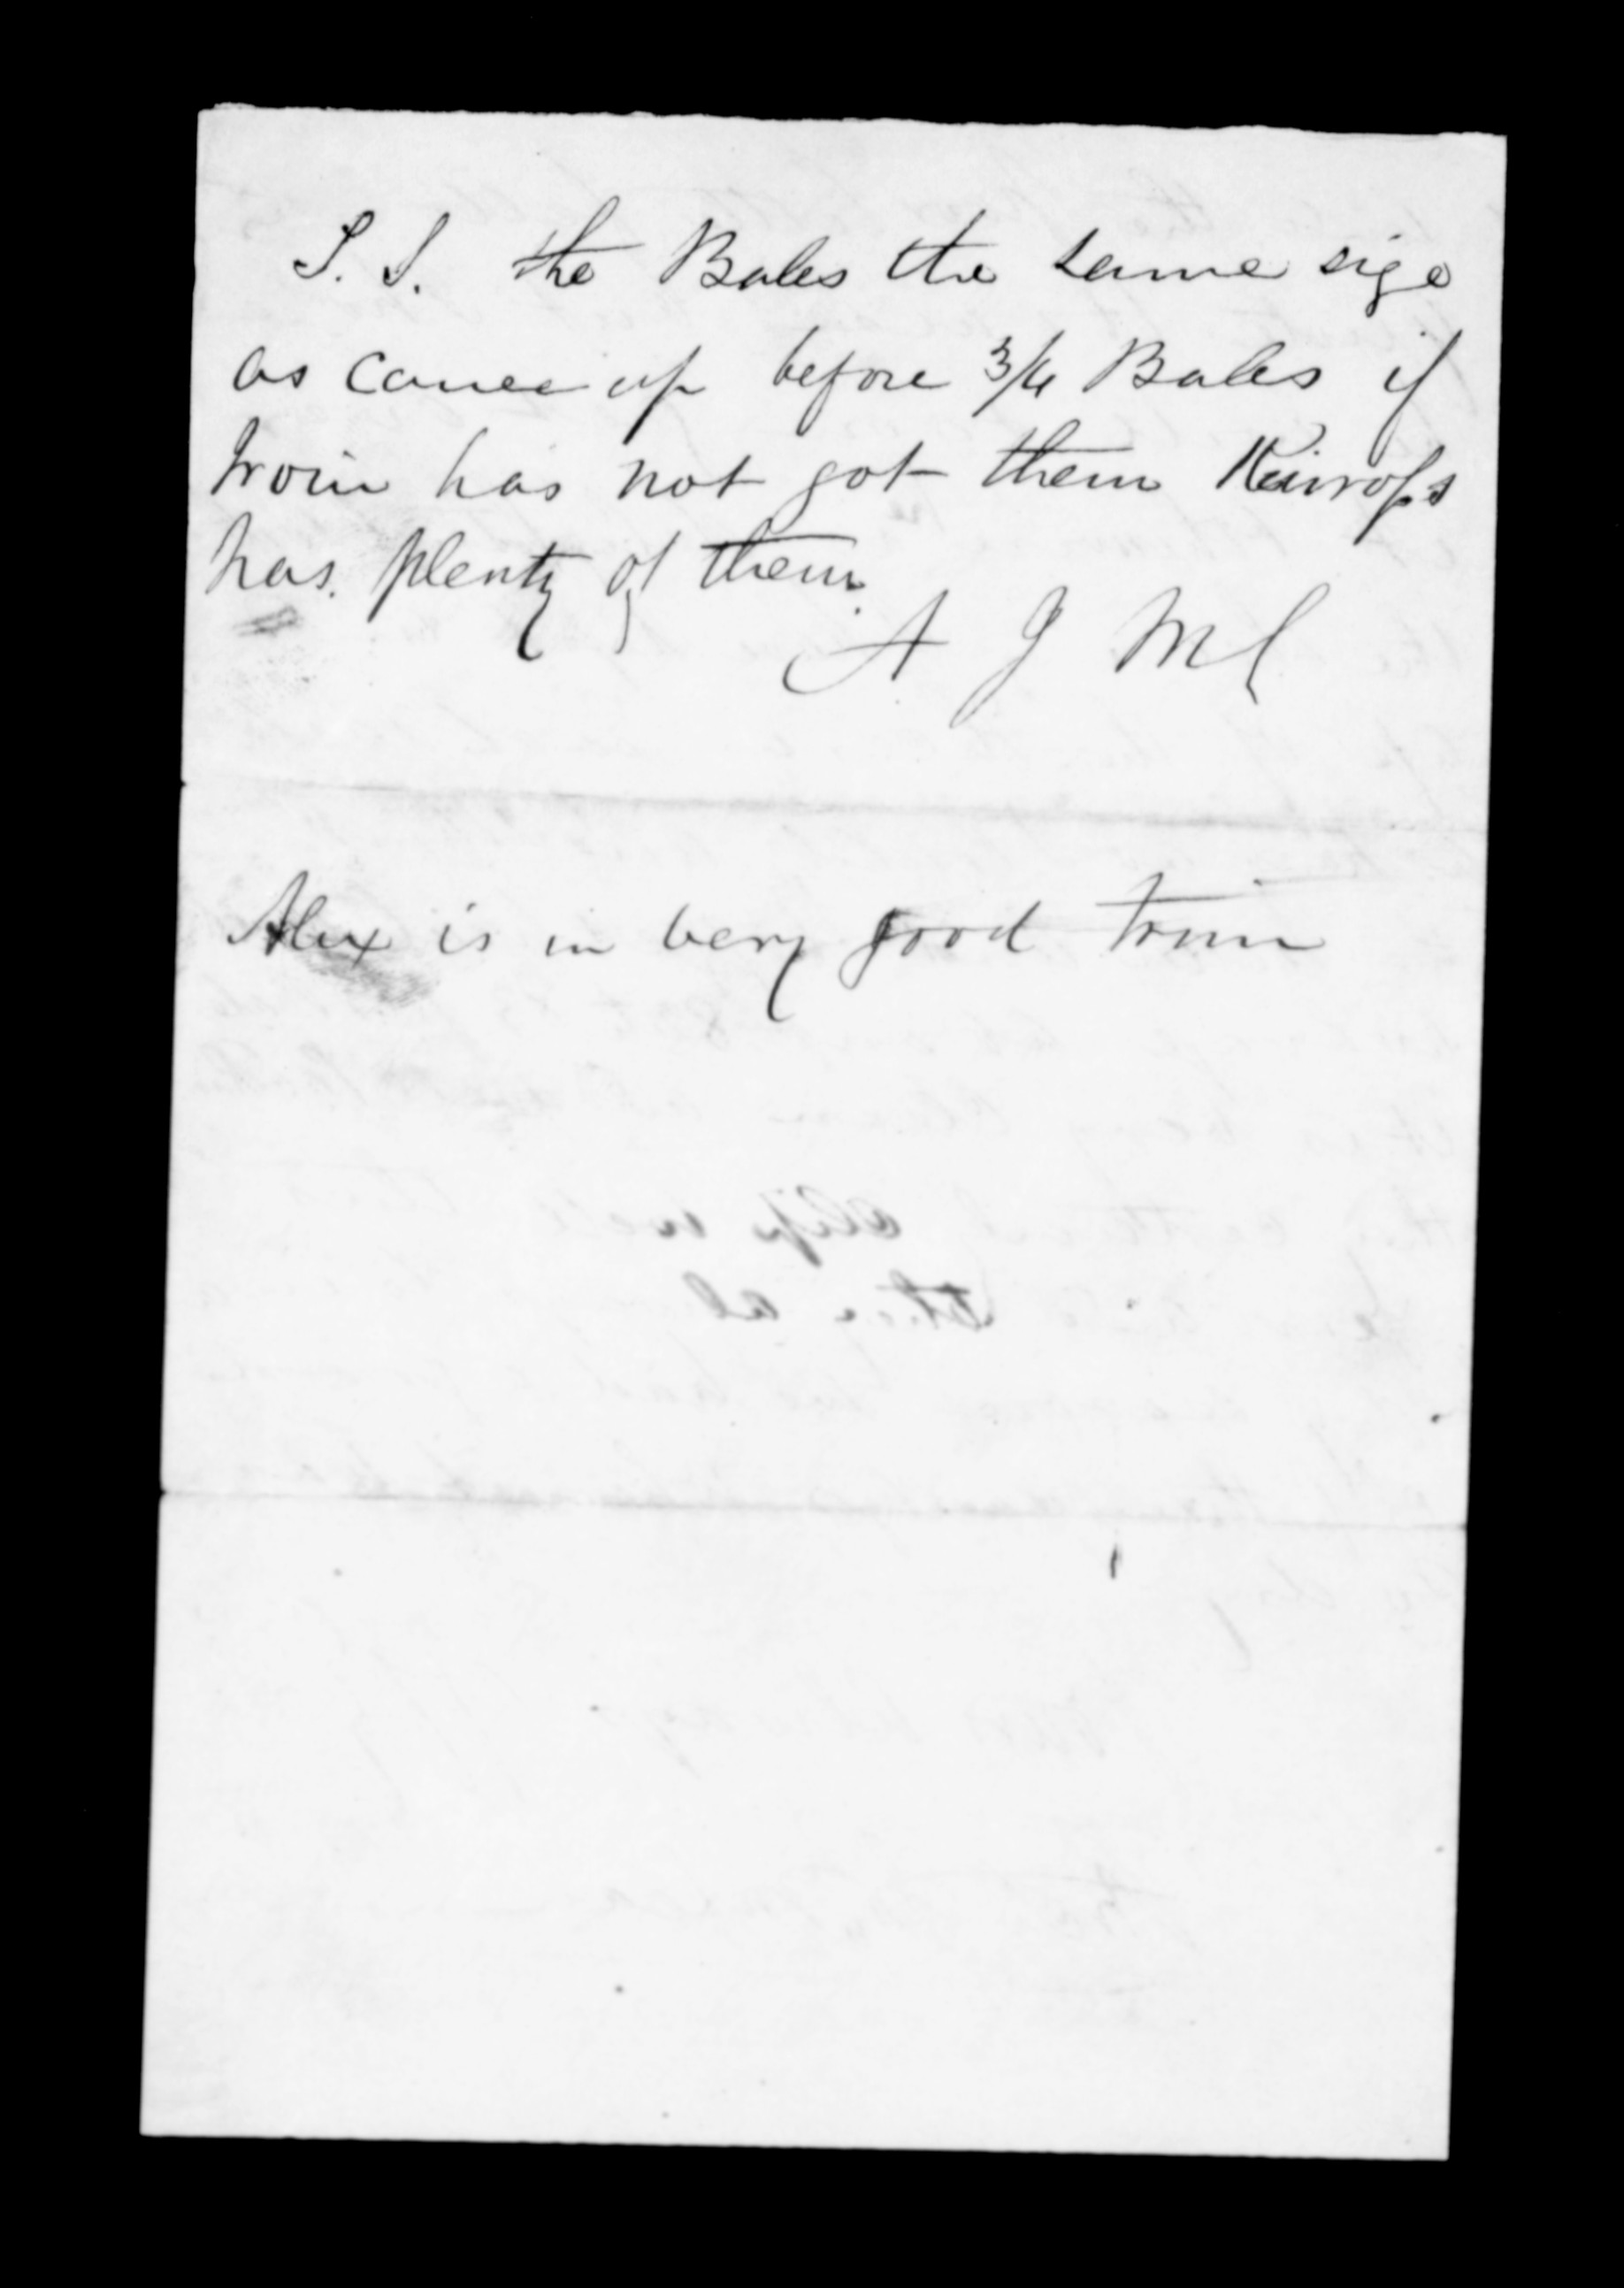 P.S. the Bales the same size
as came up before 3/4 Bales if
Irvin has not got them Kinross
has plenty of them.
A J McL
Alex is in very good trim